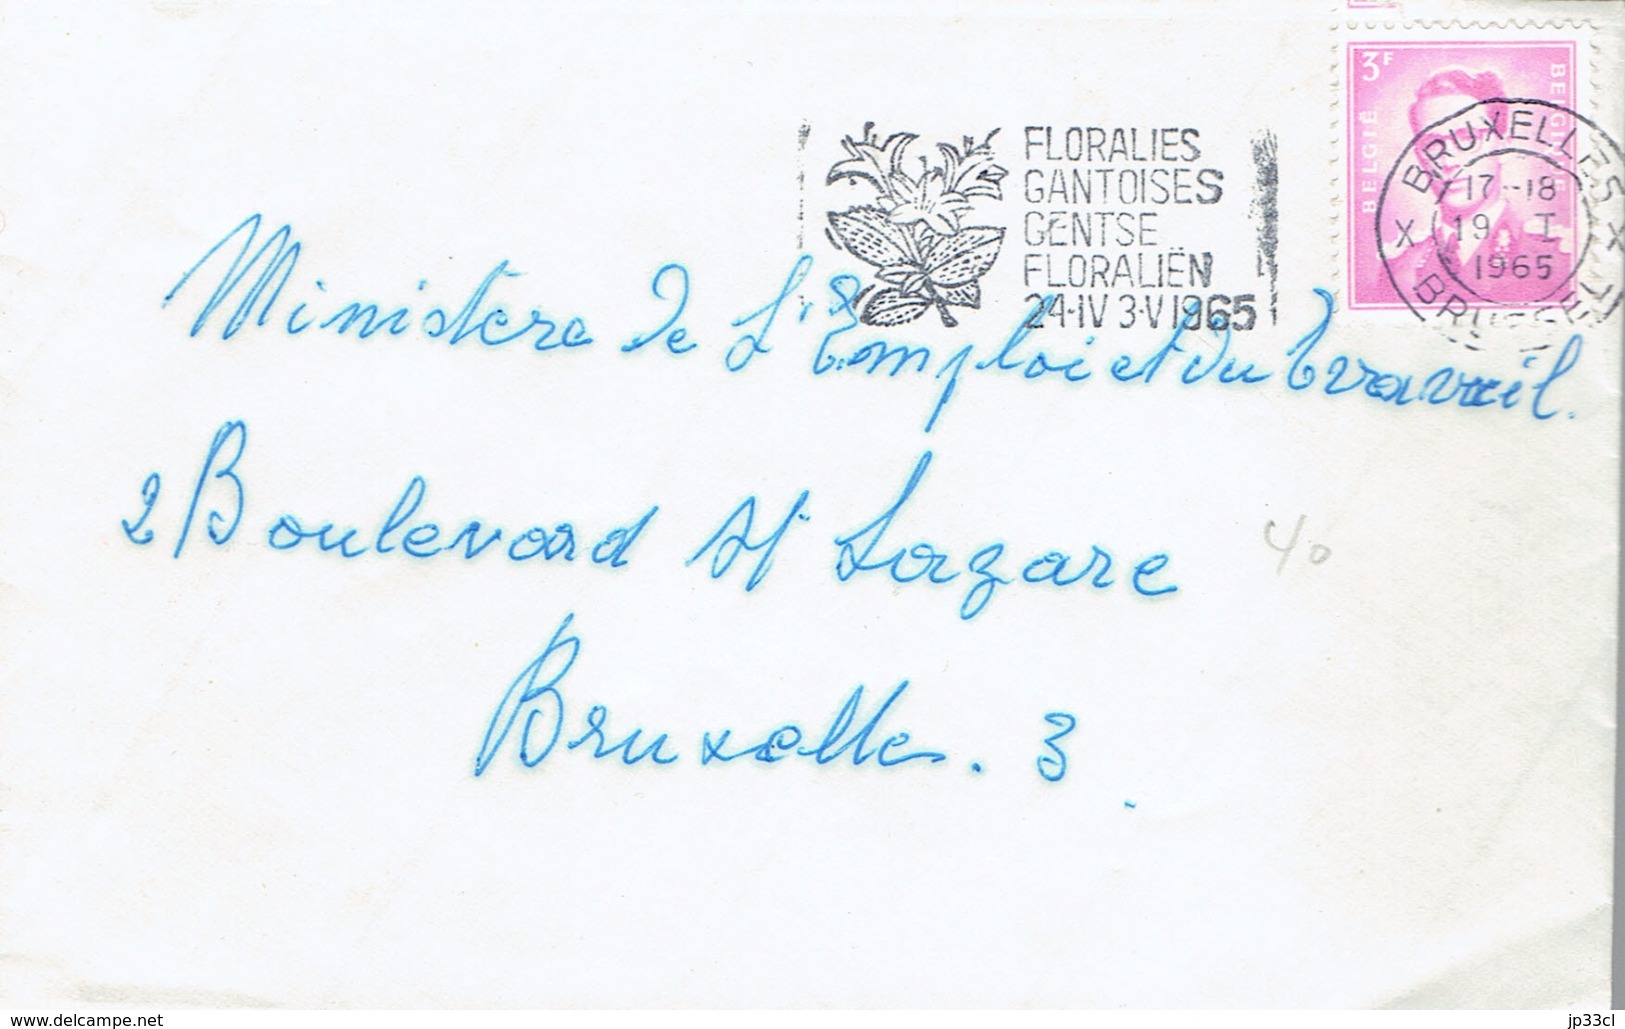 3F
BELGIË
BELGIQUE
BRUXELLES X X
17-18
19 I
1965
FLORALIES
GANTOISES
GENTSE
FLORALIËN
24·IV 3·V 1965
Ministere de L'Emploi et du Travail.
2 Boulevard St Lazare
40
Bruxelles. 3
www.delcampe.net
jp33cl